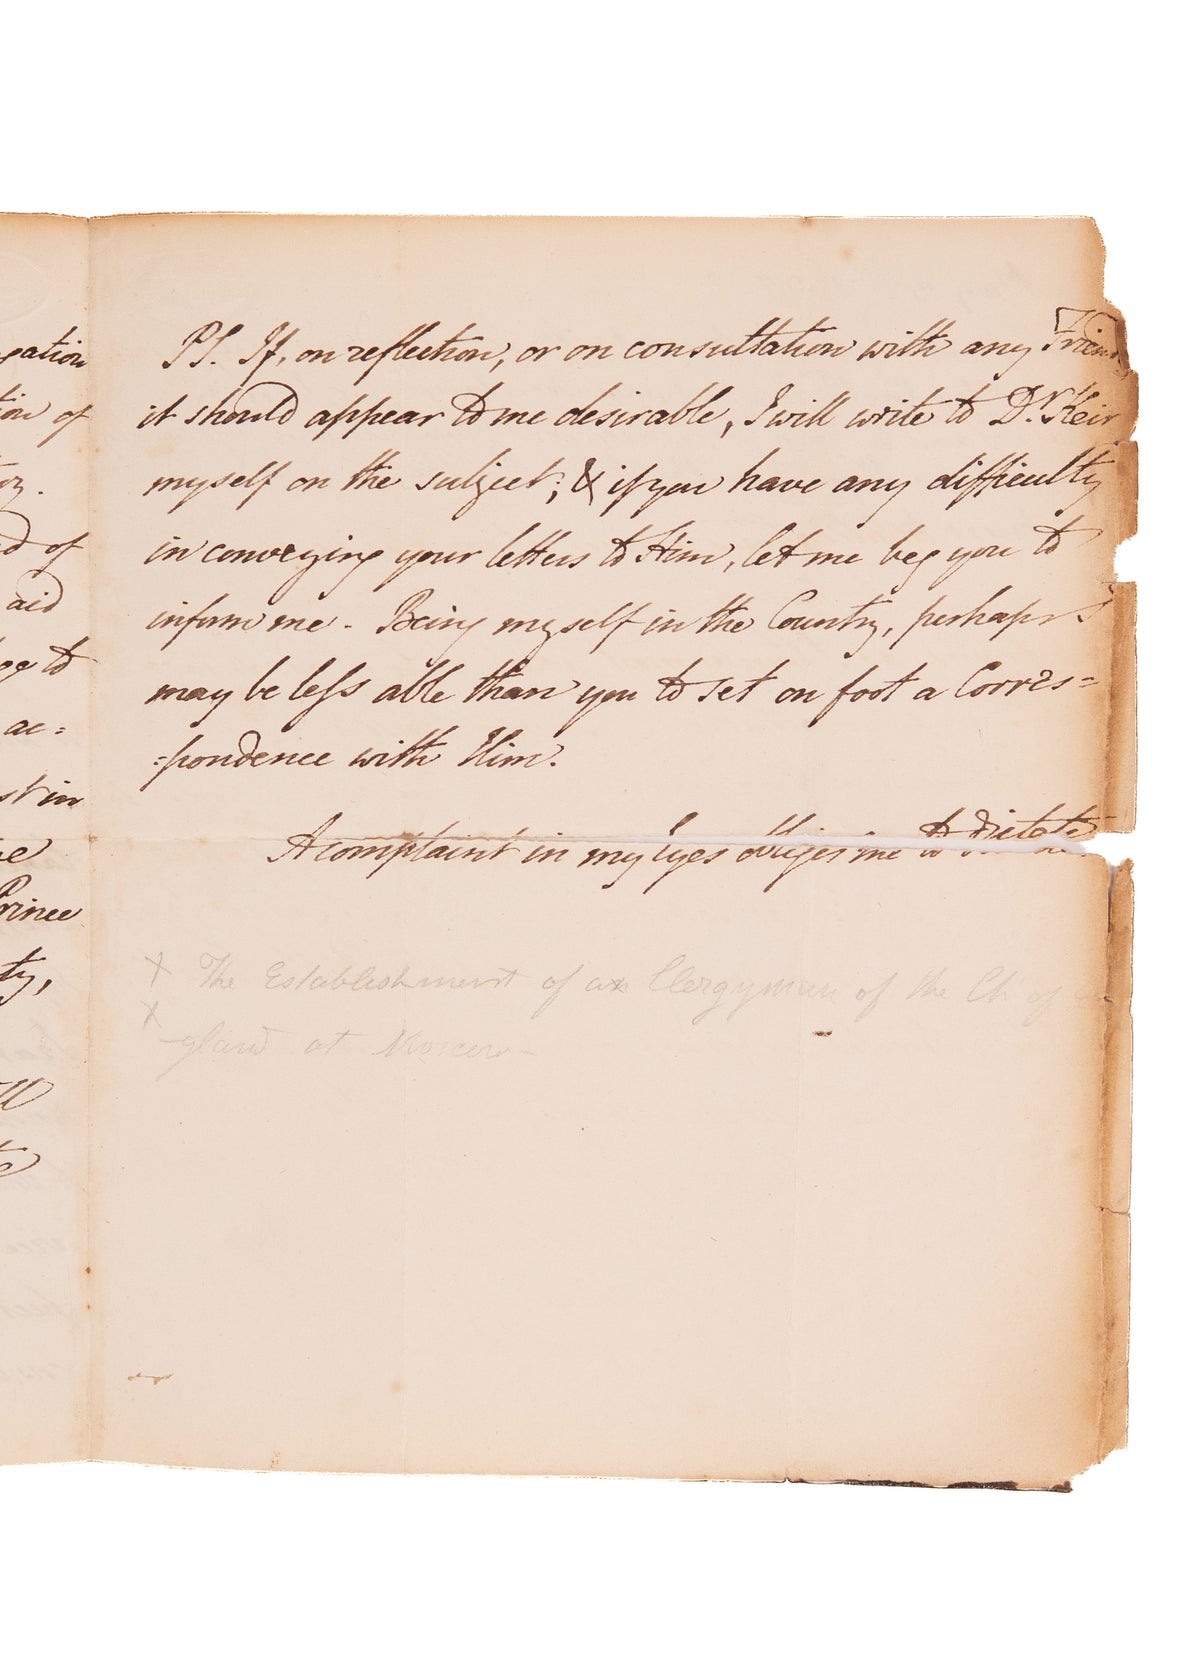 gation
tion of
d of
aid
to
ac:
st in
Prince
ty,
PS. If, on reflection, or on consultation with any Friend
it should appear to me desirable, I will write to Dr. Keir
myself on the subject; & if you have any difficulty
in conveying your letters to Him, let me beg you to
inform me - Being myself in the Country, perhaps I
may be less able than you to set on foot a Corres=
=pondence with Him.
A complaint in my Eyes obliges me to dictate
X The Establishment of an Clergyman of the Ch. of En
X -gland at Moscow -